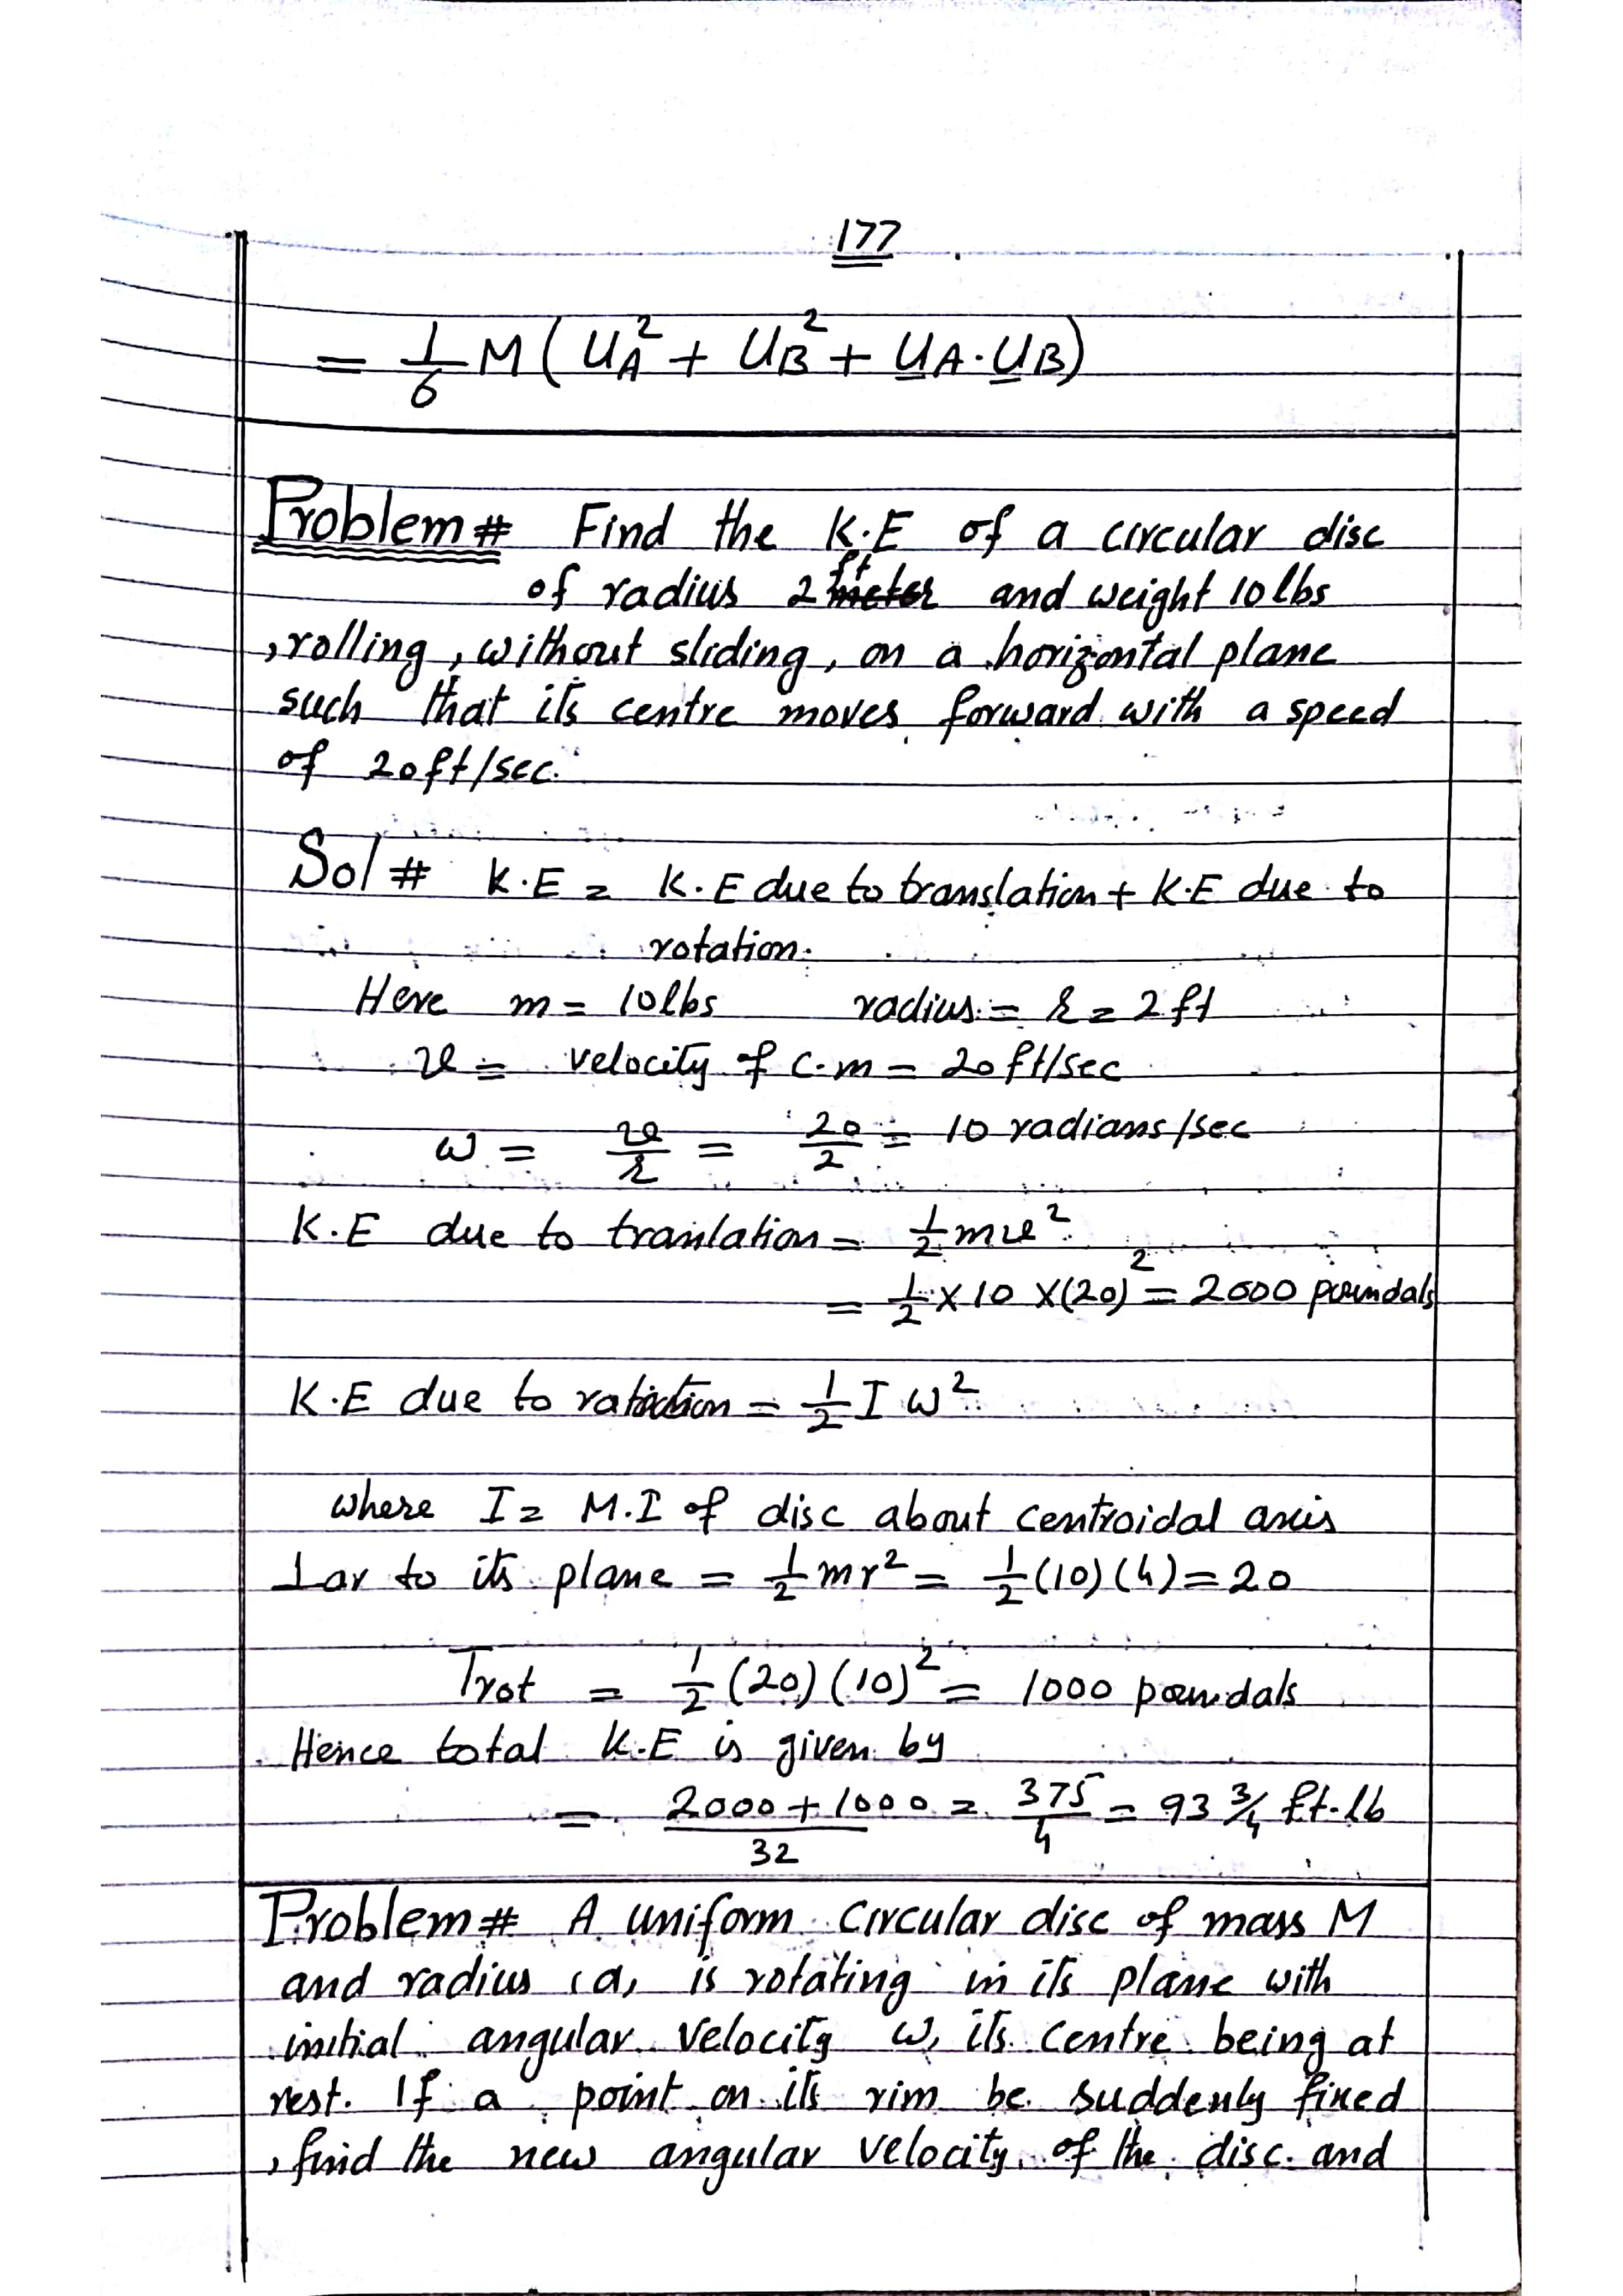 177
= 1/6 M ( U_A^2 + U_B^2 + U_A . U_B )
Problem # Find the K.E of a circular disc
of radius 2 ft and weight 10 lbs
, rolling , without sliding , on a horizontal plane
such that its centre moves forward with a speed
of 20 ft/sec.
Sol # K.E = K.E due to translation + K.E due to
rotation.
Here m = 10 lbs radius = r = 2 ft
v = velocity of c.m = 20 ft/sec
ω = v/r = 20/2 = 10 radians/sec
K.E due to tranlation = 1/2 mv^2
= 1/2 × 10 × (20)^2 = 2000 poundals
K.E due to = 1/2 I ω^2
where I = M.I of disc about centroidal axis
⊥ar to its plane = 1/2 mr^2 = 1/2 (10) (4) = 20
Trot = 1/2 (20) (10)^2 = 1000 poundals
Hence total K.E is given by
= (2000 + 1000)/32 = 375/4 = 93 3/4 ft-lb
Problem # A uniform circular disc of mass M
and radius 'a' is rotating in its plane with
initial angular velocity ω, its centre being at
rest. If a point on its rim be suddenly fixed
, find the new angular velocity of the disc and